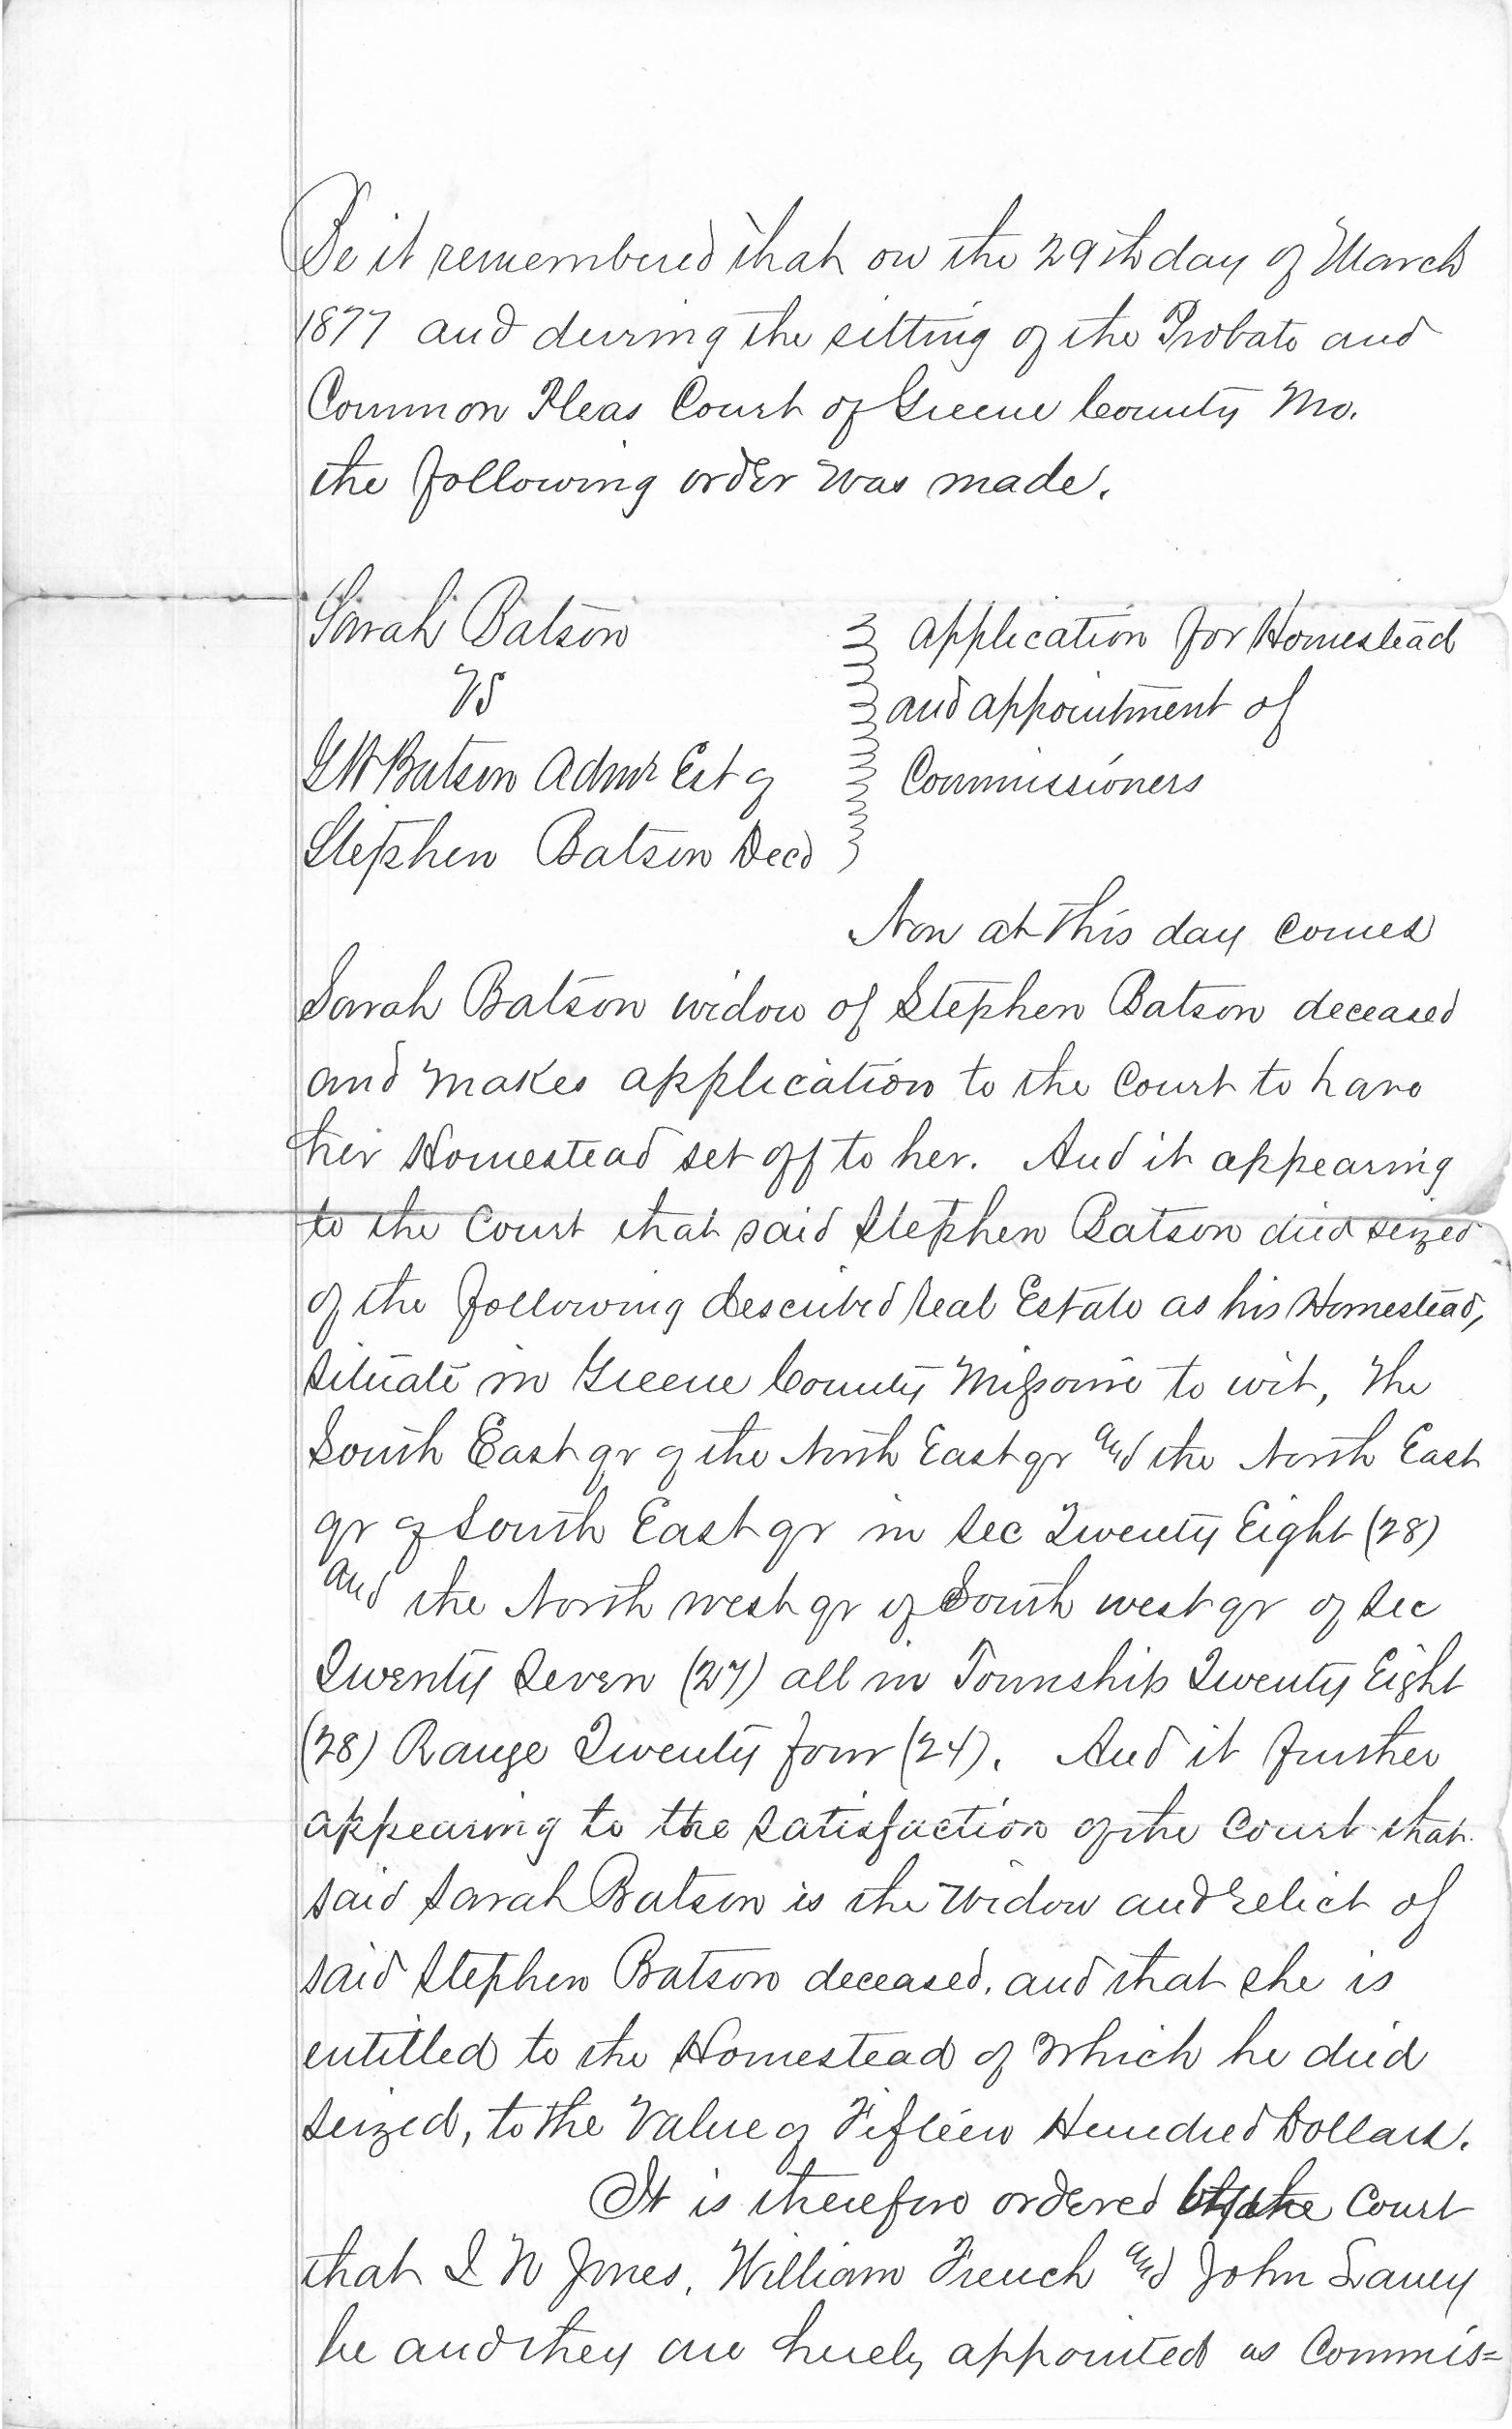 Be it remembered that on the 29th day of March
1877 and during the sitting of the Probate and
Common Pleas Court of Greene County Mo.
the following order was made.
Sarah Batson
vs
G W Batson Admr Est of
Stephen Batson Decd
Application for Homestead
and appointment of
Commissioners
Now at this day comes
Sarah Batson widow of Stephen Batson deceased
and makes application to the Court to have
her Homestead set off to her. And it appearing
to the Court that said Stephen Batson died seized
of the following described real Estate as his Homestead,
situate in Greene County Missouri to wit, The
South East qr of the North East qr and the North East
qr of South East qr in Sec Twenty Eight (28)
and the North west qr of South west qr of Sec
Twenty Seven (27) all in Township Twenty Eight
(28) Range Twenty four (24). And it further
appearing to the satisfaction of the Court that
said Sarah Batson is the widow and relict of
said Stephen Batson deceased, and that she is
entitled to the Homestead of which he died
seized, to the value of Fifteen Hundred Dollars.
It is therefore ordered by the Court
that I N Jones, William French and John Laney
be and they are hereby appointed as Commis=